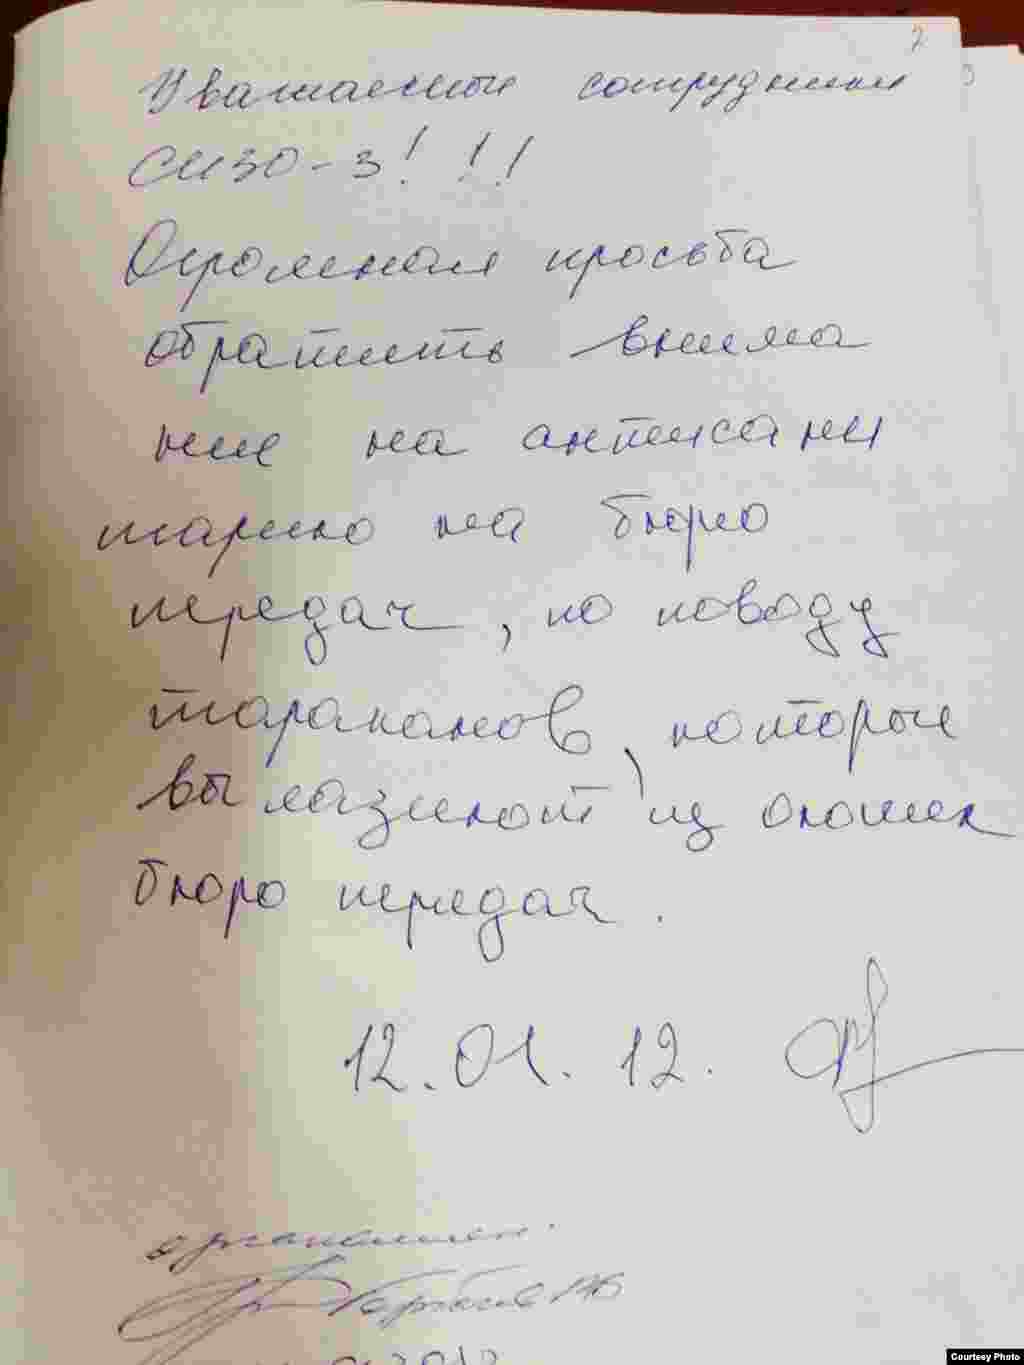 2
Уважаемые сотрудники
СИЗО-3! !!
Огромная просьба
обратить внима
ние на антисани
тарию на бюро
передач, по поводу
тараканов, которые
вылазиют из окошек
бюро передач.
12.01.12.
Courtesy Photo